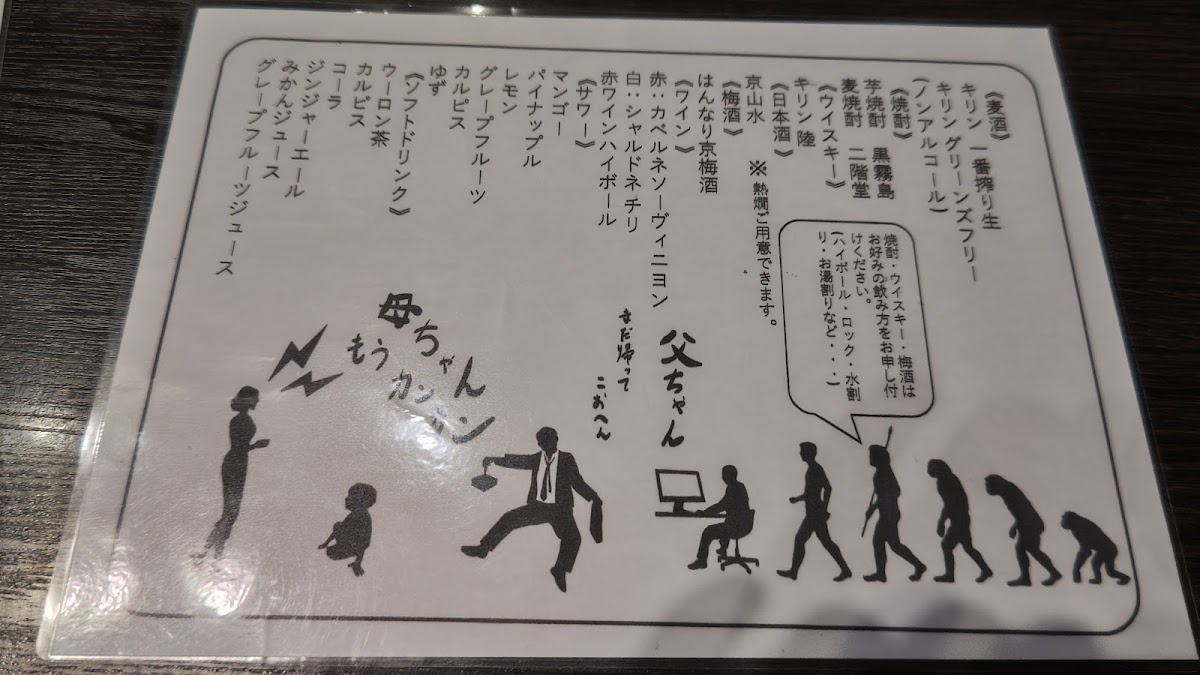 《麦酒》
キリン 一番搾り生
キリン グリーンズフリー
(ノンアルコール)
《焼酎》
芋焼酎 黒霧島
麦焼酎 二階堂
《ウイスキー》
キリン 陸
《日本酒》
京山水 ※熱燗ご用意できます。
《梅酒》
はんなり京梅酒
《ワイン》
赤:カベルネソーヴィニヨン
白:シャルドネチリ
赤ワインハイボール
《サワー》
マンゴー
パイナップル
レモン
グレープフルーツ
カルピス
ゆず
《ソフトドリンク》
ウーロン茶
カルピス
コーラ
ジンジャーエール
みかんジュース
グレープフルーツジュース
焼酎・ウイスキー・梅酒は
お好みの飲み方をお申し付
けください。
(ハイボール・ロック・水割
り・お湯割りなど・・・)
父ちゃん
まだ帰って
こおへん
母ちゃん
もう
カンカン